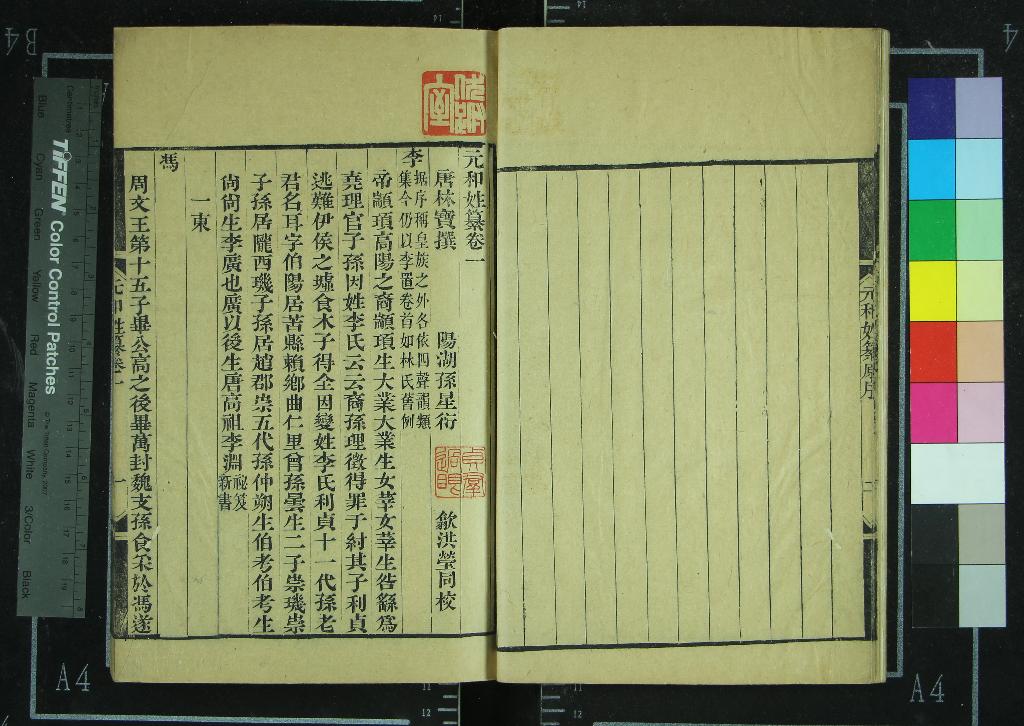 元和姓纂原序
元和姓纂卷一
唐林寶撰　陽湖孫星衍　歙洪瑩同校
李　据序稱皇族之外各依四聲韻類
集今仍以李置卷首如林氏舊例
帝顓頊高陽之裔顓頊生大業大業生女莘女莘生咎繇爲
堯理官子孫因姓李氏云云裔孫理徵得罪于紂其子利貞
逃難伊侯之墟食木子得全因變姓李氏利貞十一代孫老
君名耳字伯陽居苦縣賴鄉曲仁里曾孫曇生二子崇璣崇
子孫居隴西璣子孫居趙郡崇五代孫仲翔生伯考伯考生
尙尙生李廣也廣以後生唐高祖李淵祕笈
新書
一東
馮
周文王第十五子畢公高之後畢萬封魏支孫食采於馮遂
元和姓纂卷一
一
TIFFEN Color Control Patches
© The Tiffen Company, 2007
Centimetres
Blue
Cyan
Green
Yellow
Red
Magenta
White
3/Color
Black
A4
A4
B4